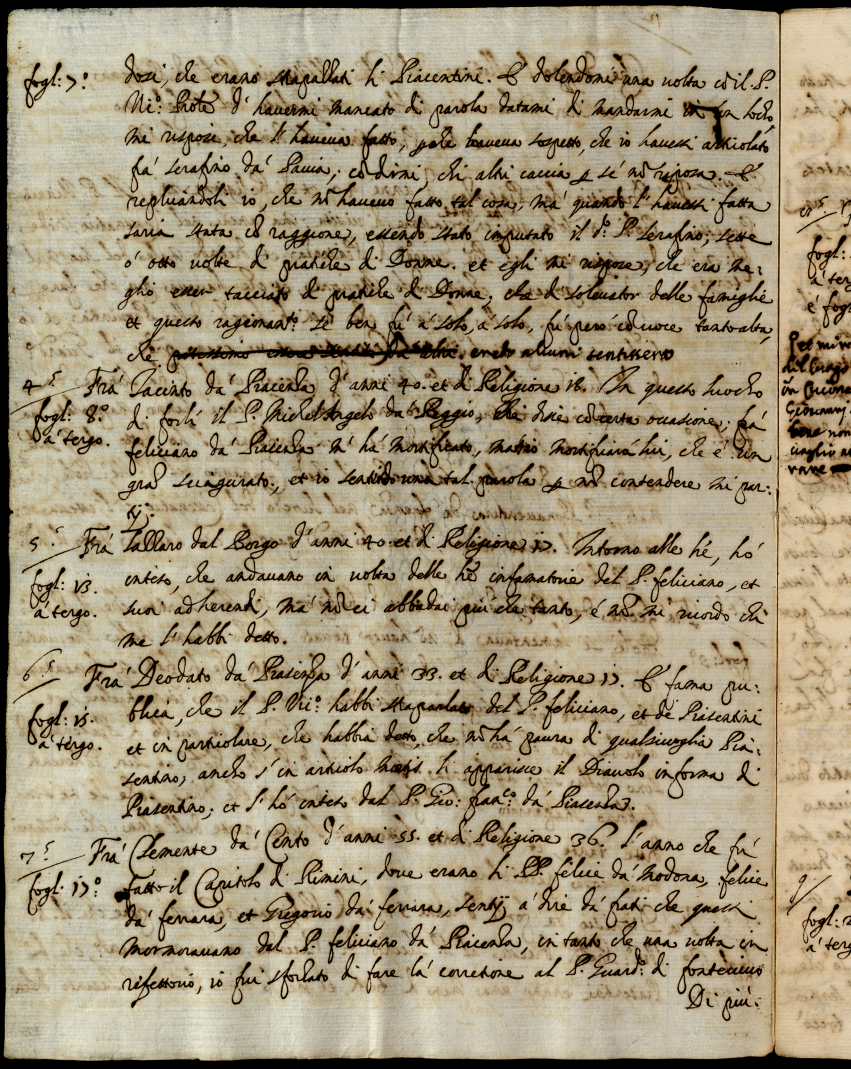 fogl: 7.° dosi, che erano strapallati li Piacentini. E dolendomi una volta cõ il P.
Vic.° Prõle d'havermi mancato di parola datami di mandarmi in un loco
mi rispose, che l'haveva fatto, haveva sospetto, che io havessi articolato
frà serafino dà Pavia, cõ dirmi, chi altri caccia se nõ riposa. E
replicandoli io, che nõ havevo fatto tal cosa, mà quando l'havessi fatta
saria stata cõ raggione, essendo stato imputato il d.° P. serafino, sette
ò otto volte di pratiche di Donne. et egli mi rispose, che era me:
glio esser tacciato di pratiche di Donne, che di solevator delle fameglie
et questo ragionam.to se ben fù à solo, à solo, fù però cõ voce tanto alta,
che credo alcuni sentissero
4.s Frà Iacinto dà Piacenza d'anni 40. et di Religione 18. In questo luocho
fogl: 8.° à tergo. di forlì il P. Michel'Angelo dà Reggio, disse cõ certa occasione, frà
feliciano dà Piacenza m'hà mortificato, mortificarà lui, che è un
grã sciagurato, et io sentido una tal parola nõ contendere mi par:
tij.
5.s Frà lallaro dal Borgo d'anni 40. et di Religione 17. Intorno alle , hò
fogl: 13. inteso, che andavano in volta delle infamatorie del P. feliciano, et
à tergo. suoi adherendi, mà nõ ci abbadai più che tanto, é nõ mi ricordo chi
me l'habbi detto.
6.s Frà Deodato dà Piasenza d'anni 33. et di Religione 17. E' fama pu:
fogl: 15. blica, che il P. Vic.° habbi straparlato del P. feliciano, et dè Piasentini
à tergo. et in particolare, che habbia detto, che nõ hà paura di qualsivoglia Pia:
sentino, ancho s'in articolo mortis li apparisce il Diavolo in forma di
Piasentino, et l'hò inteso dal P. Gio: fran.co dà Piasenza.
7.s Frà Clemente dà Cento d'anni 55. et di Religione 36. l'anno che fù
fogl: 17.° fatto il Capitolo di Rimini, dove erano li PP. felice dà Modona, felice
dà ferrara, et Gregorio dà ferrara, sentij à dire dà frati che questi
mormoravano del P. feliciano dà Piacenza, in tanto che una volta in
refettorio, io fui sforzato di fare la corretione al P. Guard.° di
Di più:
fogl:
à terg
è fogl
9.
fogl: 2
à terg